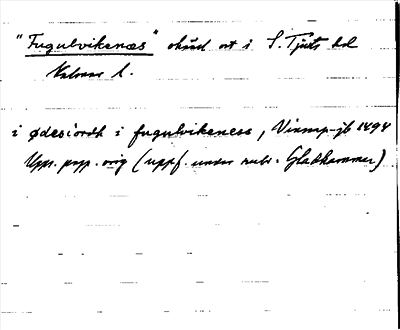 "Fugulvikenæs" okänd ort i S. Tjusts hd
Kalmar l.
i ødesiordh i fugulvikeness, Vinorp-jb 1494
Upps. papp. orig (uppf. under rubr. Gladhammar)